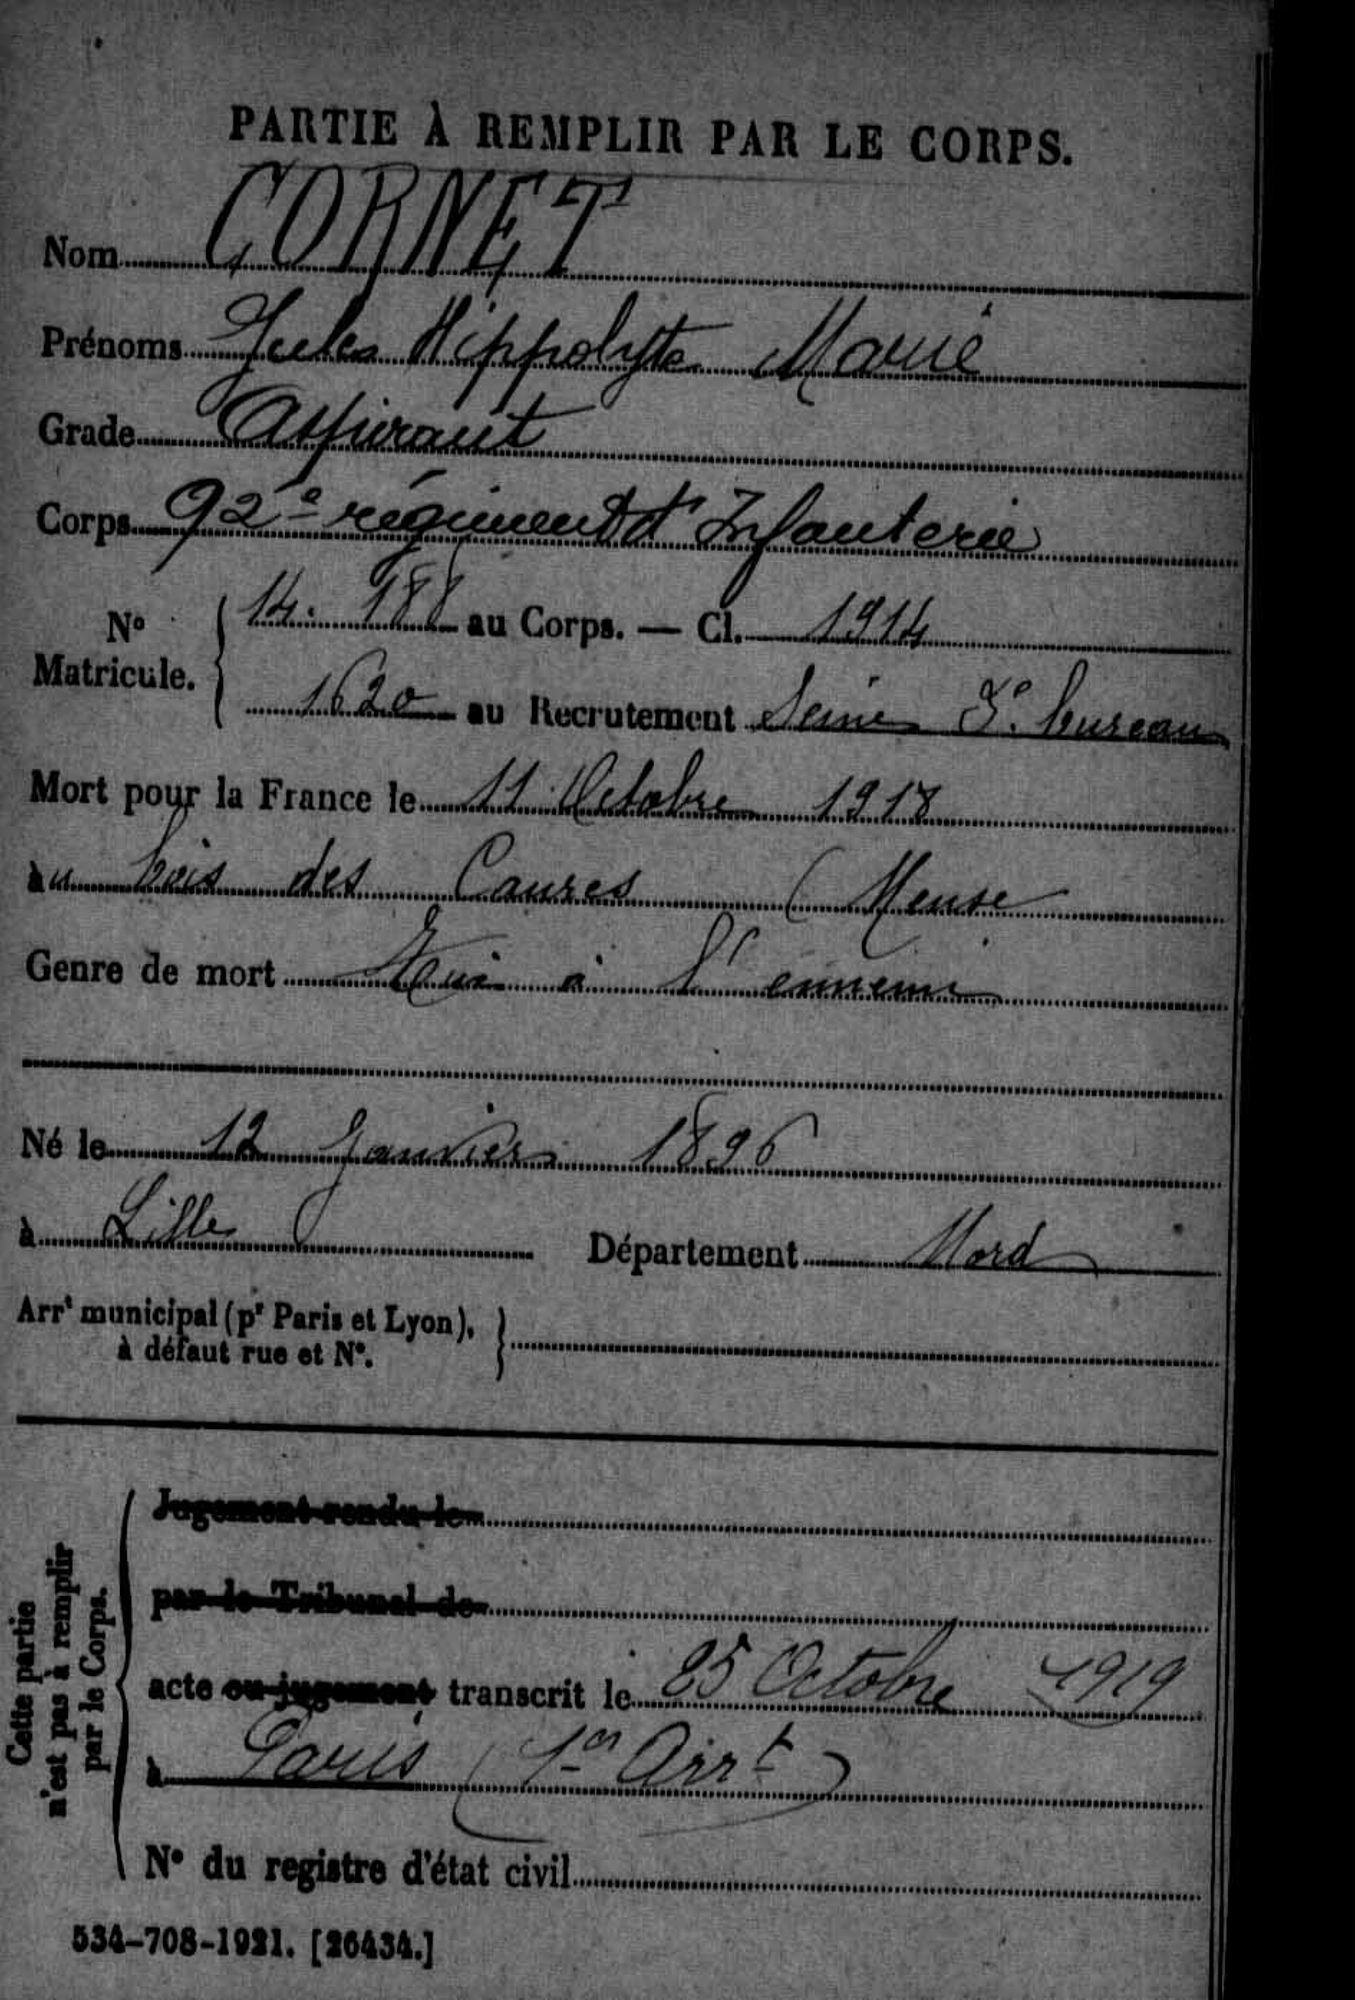 PARTIE À REMPLIR PAR LE CORPS.
Nom CORNET
Prénoms Jules Hippolyte Marie
Grade Aspirant
Corps 92e régiment d'Infanterie
No Matricule. 14. 988 au Corps. — Cl. 1914
1620 au Recrutement Seine bureau
Mort pour la France le 11 Octobre 1918
au bois des Caures (Meuse
Genre de mort Tué à l'ennemi
Né le 12 Janvier 1896
à Lille Département Nord
Arrt municipal (pr Paris et Lyon),
à défaut rue et No.
Cette partie
n'est pas à remplir
par le Corps.
Jugement rendu le
par le Tribunal de
acte ou jugement transcrit le 25 Octobre 1919
à Paris (1er Arrt)
No du registre d'état civil
534-708-1921. [26434.]